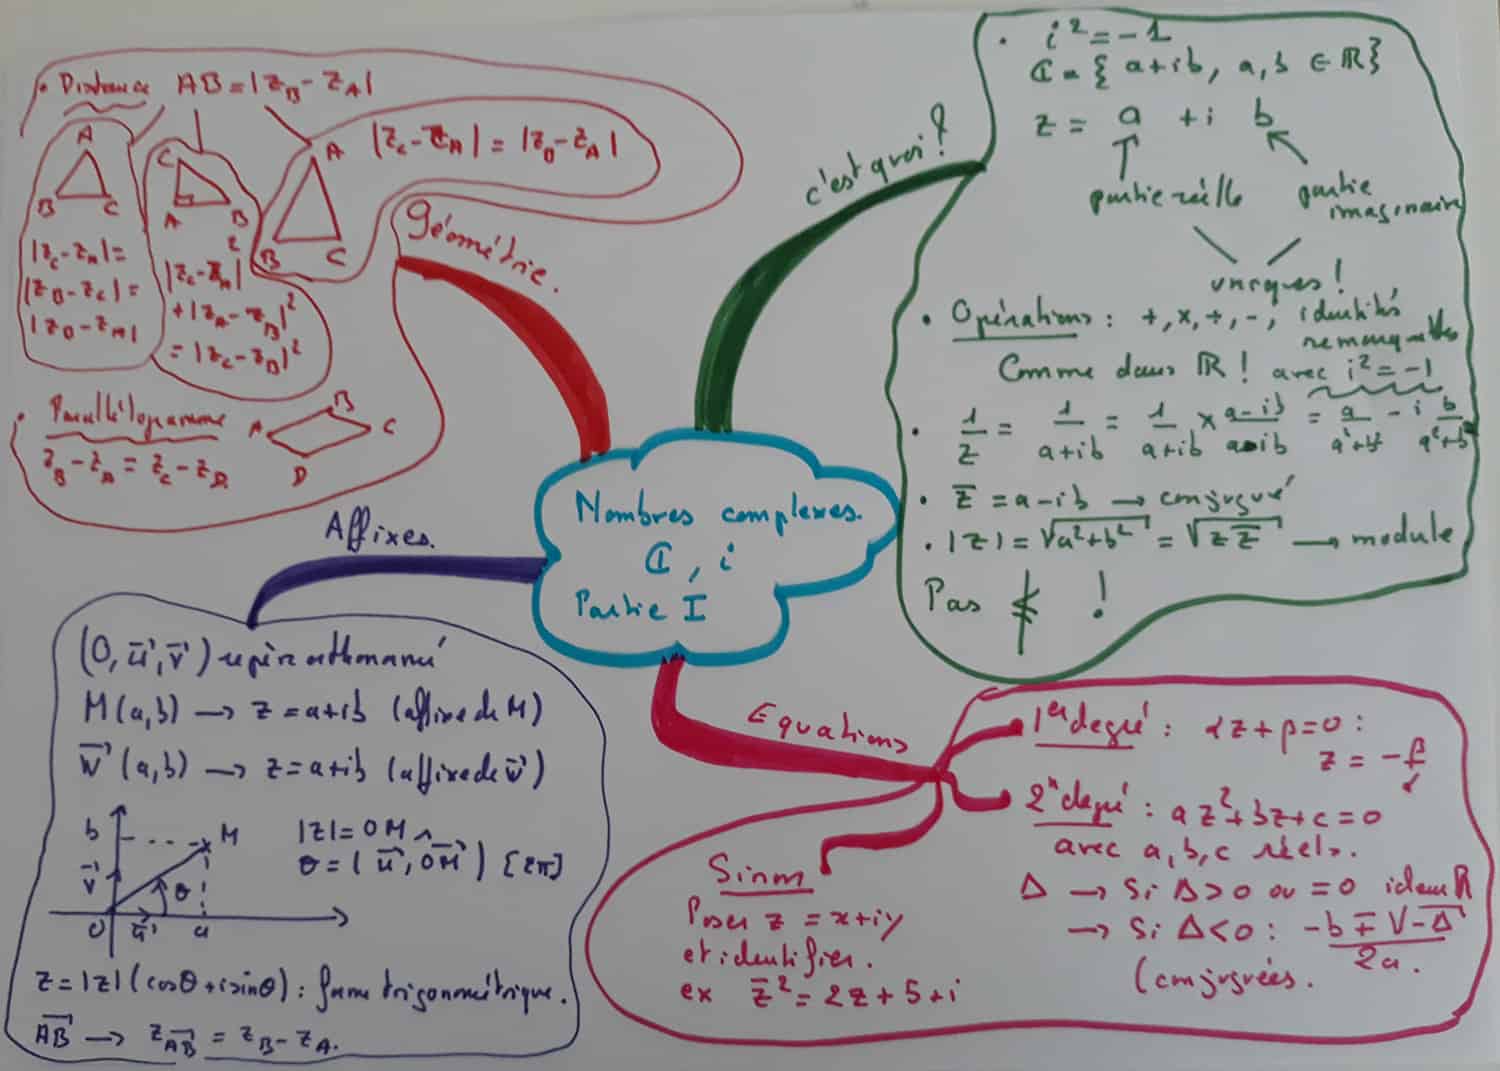 Nombres complexes.
ℂ, i
Partie I
c'est quoi?
• i² = -1
ℂ = { a+ib, a,b ∈ ℝ}
z = a + i b
partie réelle
partie
imaginaire
uniques !
• Opérations : +, ×, ÷, -, identités
remarquables
Comme dans ℝ ! avec i² = -1
• 1/z = 1/(a+ib) = 1/(a+ib) × (a-ib)/(a-ib) = a/(a²+b²) - i b/(a²+b²)
• z̄ = a-ib → conjugué
• |z| = √(a²+b²) = √(z z̄) → module
Pas ≮ !
Géométrie.
• Distance AB = |z_B - z_A|
A
B C
|z_C - z_A| =
|z_B - z_C| =
|z_B - z_A|
C
A B
|z_C - z_A|²
+ |z_A - z_B|²
= |z_C - z_B|²
A
B C
|z_C - z_A| = |z_B - z_A|
• Parallélogramme
z_B - z_A = z_C - z_D
A B C
D
Affixes.
(O, u⃗, v⃗) repère orthonormé
M(a,b) → z = a+ib (affixe de M)
w⃗(a,b) → z = a+ib (affixe de w⃗)
b M
v⃗ θ
O u⃗ a
|z| = OM
θ = (u⃗, OM⃗) [2π]
z = |z|(cosθ + i sinθ) : forme trigonométrique.
AB⃗ → z_AB⃗ = z_B - z_A.
Equations
1er degré : αz + β = 0 :
z = -β/α
2n degré : az² + bz + c = 0
avec a, b, c réels.
Δ → Si Δ>0 ou =0 idem ℝ
→ Si Δ<0 : (-b ∓ √-Δ)/2a.
(conjuguées.
Sinon
Poser z = x+iy
et identifier.
ex z̄² = 2z + 5 + i